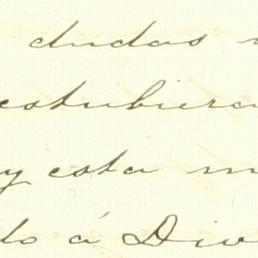 dudas
estubiera
y esta
do á Dio